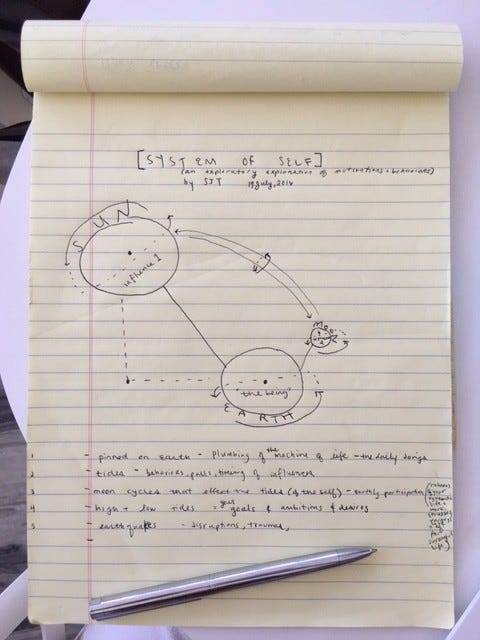 [SYSTEM OF SELF]
(an exploratory explanation of motivations + behaviors)
by SJT 19 July, 2018
SUN
influence 1
Moon
2
"the being"
EARTH
1 - pinned on earth - plumbing of the machine of life - the daily doings
2 - tides - behaviors, pulls, timing of influences
3 - moon cycles that effect the tides (of the self) - earthly participation
4 - high + low tides = goals & ambitions & desires
5 - earthquakes - disruptions, traumas,
-